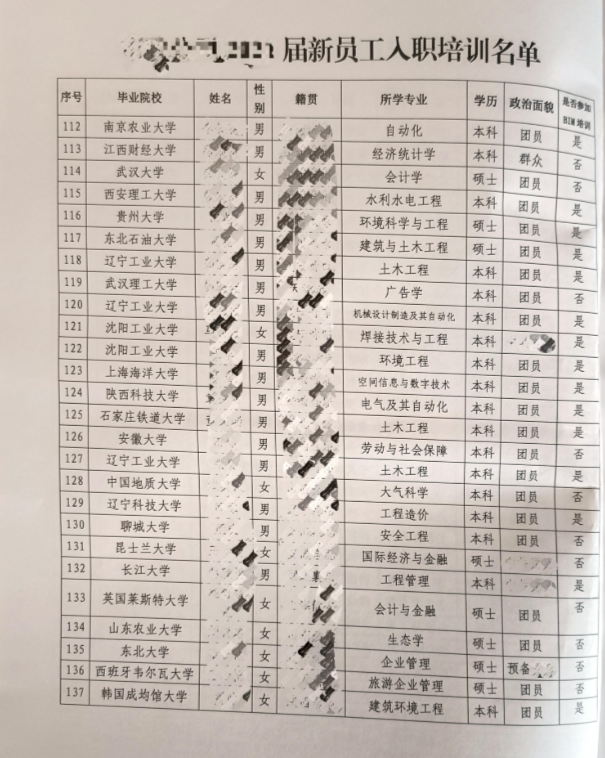 届新员工入职培训名单
序号 毕业院校 姓名 性别 籍贯 所学专业 学历 政治面貌 是否参加BIM培训
112 南京农业大学 男 自动化 本科 团员 是
113 江西财经大学 男 经济统计学 本科 群众 否
114 武汉大学 女 会计学 硕士 团员 否
115 西安理工大学 男 水利水电工程 本科 团员 是
116 贵州大学 男 环境科学与工程 硕士 团员 是
117 东北石油大学 男 建筑与土木工程 硕士 团员 是
118 辽宁工业大学 男 土木工程 本科 团员 是
119 武汉理工大学 男 广告学 本科 团员 否
120 辽宁工业大学 男 机械设计制造及其自动化 本科 团员 是
121 沈阳工业大学 女 焊接技术与工程 本科 是
122 沈阳工业大学 男 环境工程 本科 团员 是
123 上海海洋大学 男 空间信息与数字技术 本科 团员 是
124 陕西科技大学 男 电气及其自动化 本科 团员 是
125 石家庄铁道大学 男 土木工程 本科 团员 是
126 安徽大学 男 劳动与社会保障 本科 团员 否
127 辽宁工业大学 男 土木工程 本科 团员 是
128 中国地质大学 女 大气科学 本科 团员 否
129 辽宁科技大学 男 工程造价 本科 团员 是
130 聊城大学 男 安全工程 本科 团员 否
131 昆士兰大学 女 国际经济与金融 硕士 否
132 长江大学 男 工程管理 本科 是
133 英国莱斯特大学 女 会计与金融 硕士 团员 否
134 山东农业大学 女 生态学 硕士 团员 否
135 东北大学 女 企业管理 硕士 预备 否
136 西班牙韦尔瓦大学 女 旅游企业管理 硕士 团员 否
137 韩国成均馆大学 女 建筑环境工程 本科 团员 是